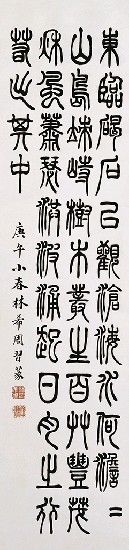 東臨碣石以觀滄海水何澹〻
山島竦峙樹木叢生百艸豐茂
秋風蕭瑟洪波涌起日月之行
若出其中
庚午小春林希周習篆